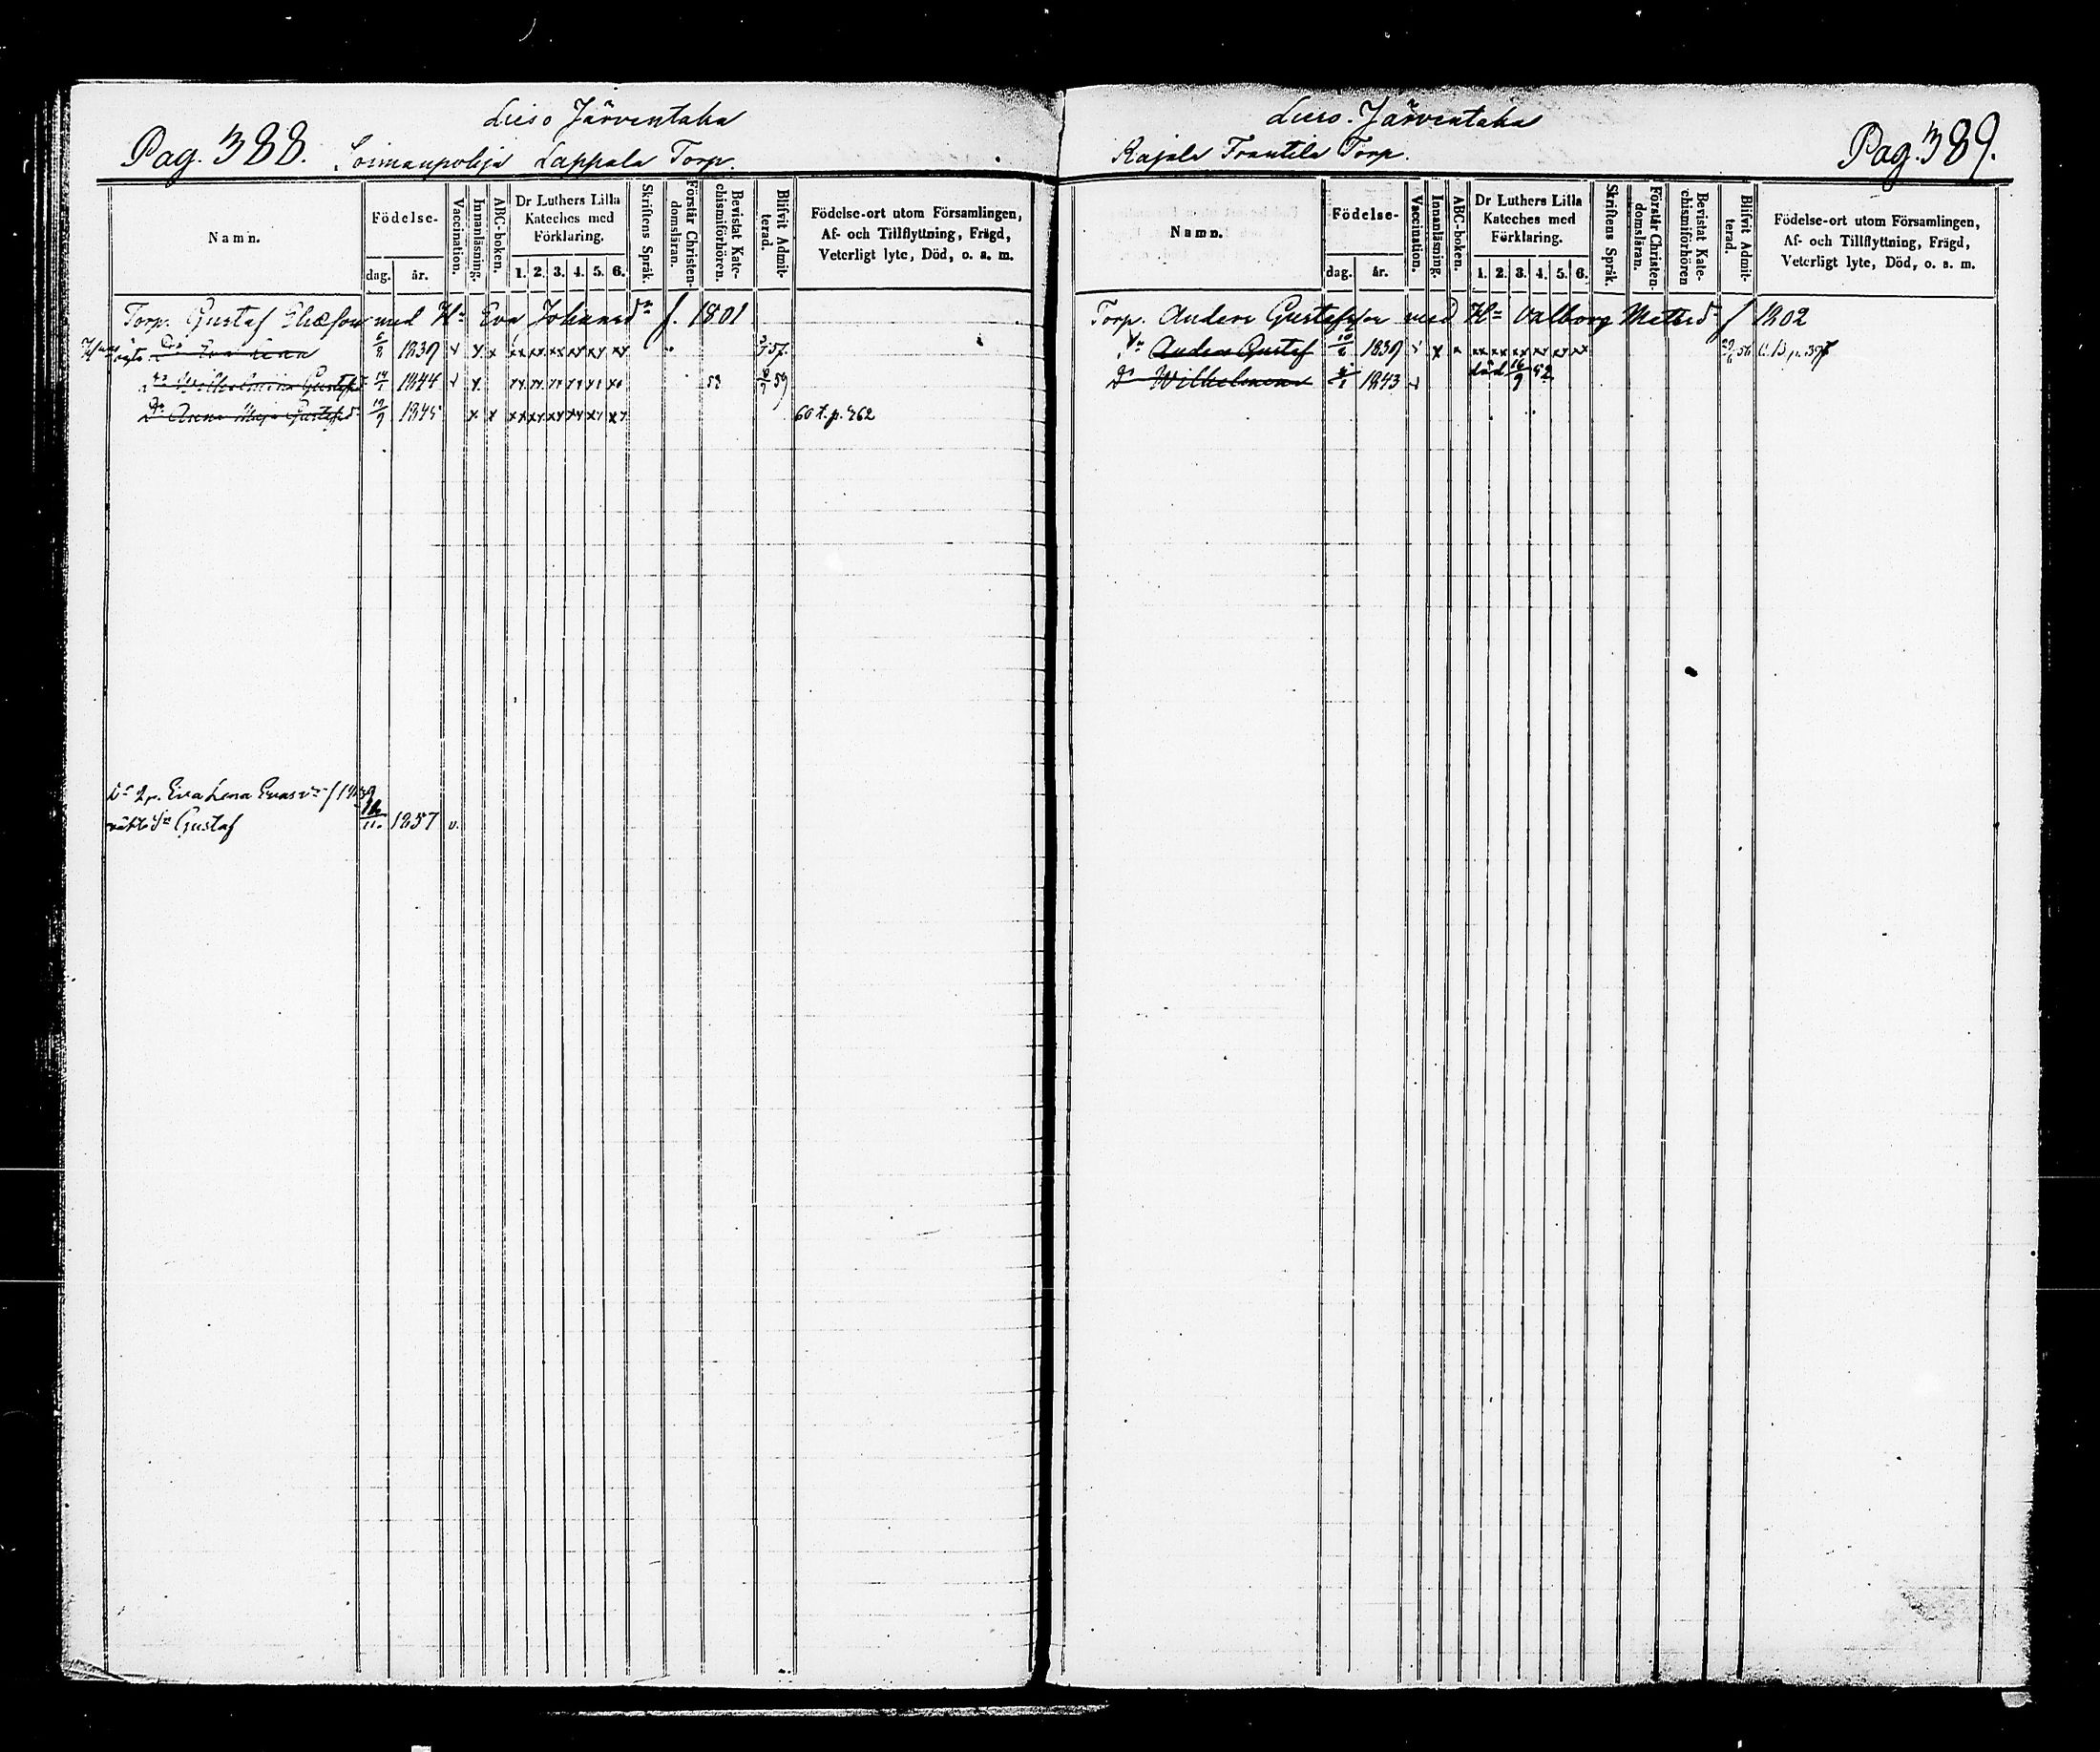 Pag. 388.
Luso Järventaka
Lappala Torp.
Namn.
Födelse-
dag.
år.
Vaccination.
Innanläsning.
ABC-boken.
Dr Luthers Lilla
Kateches med
Förklaring.
1. 2. 3. 4. 5. 6.
Skriftens Språk.
Förstår Christen-
domsläran.
Bevistat Kate-
chismiförhören.
Blifvit Admit-
terad.
Födelse-ort utom Församlingen,
Af- och Tillflyttning, Frägd,
Veterligt lyte, Död, o. s. m.
Torp. Gustaf med Hu Eva Johansdr f. 1801
Dr Eva Lena 6/8 1839 v x x xx xx xx xx xx xx 57.
Dr Wilhelmina Gustafsdr 14/1 1844 v x 53 59
Dr Anna Maja Gustafsdr 19/9 1845 x x xx xx xx xx xx xx 60 t. p. 462
Eva Lena f 1839
Gustaf 11. 1857 v.
Pag. 389.
Luso. Järventaka
Rajala Frantila Torp.
Namn.
Födelse-
dag.
år.
Vaccination.
Innanläsning.
ABC-boken.
Dr Luthers Lilla
Kateches med
Förklaring.
1. 2. 3. 4. 5. 6.
Skriftens Språk.
Förstår Christen-
domsläran.
Bevistat Kate-
chismiförhören
Blifvit Admit-
terad.
Födelse-ort utom Församlingen,
Af- och Tillflyttning, Frägd,
Veterligt lyte, Död, o. s. m.
Torp. Anders Gustafsson med Hu Valborg Matsdr f 1802
Sn Anders Gustaf 10/6 1839 v x x xx xx xx xx xx xx 56
Dr Wilhelmina 1843 v död 16/9 52